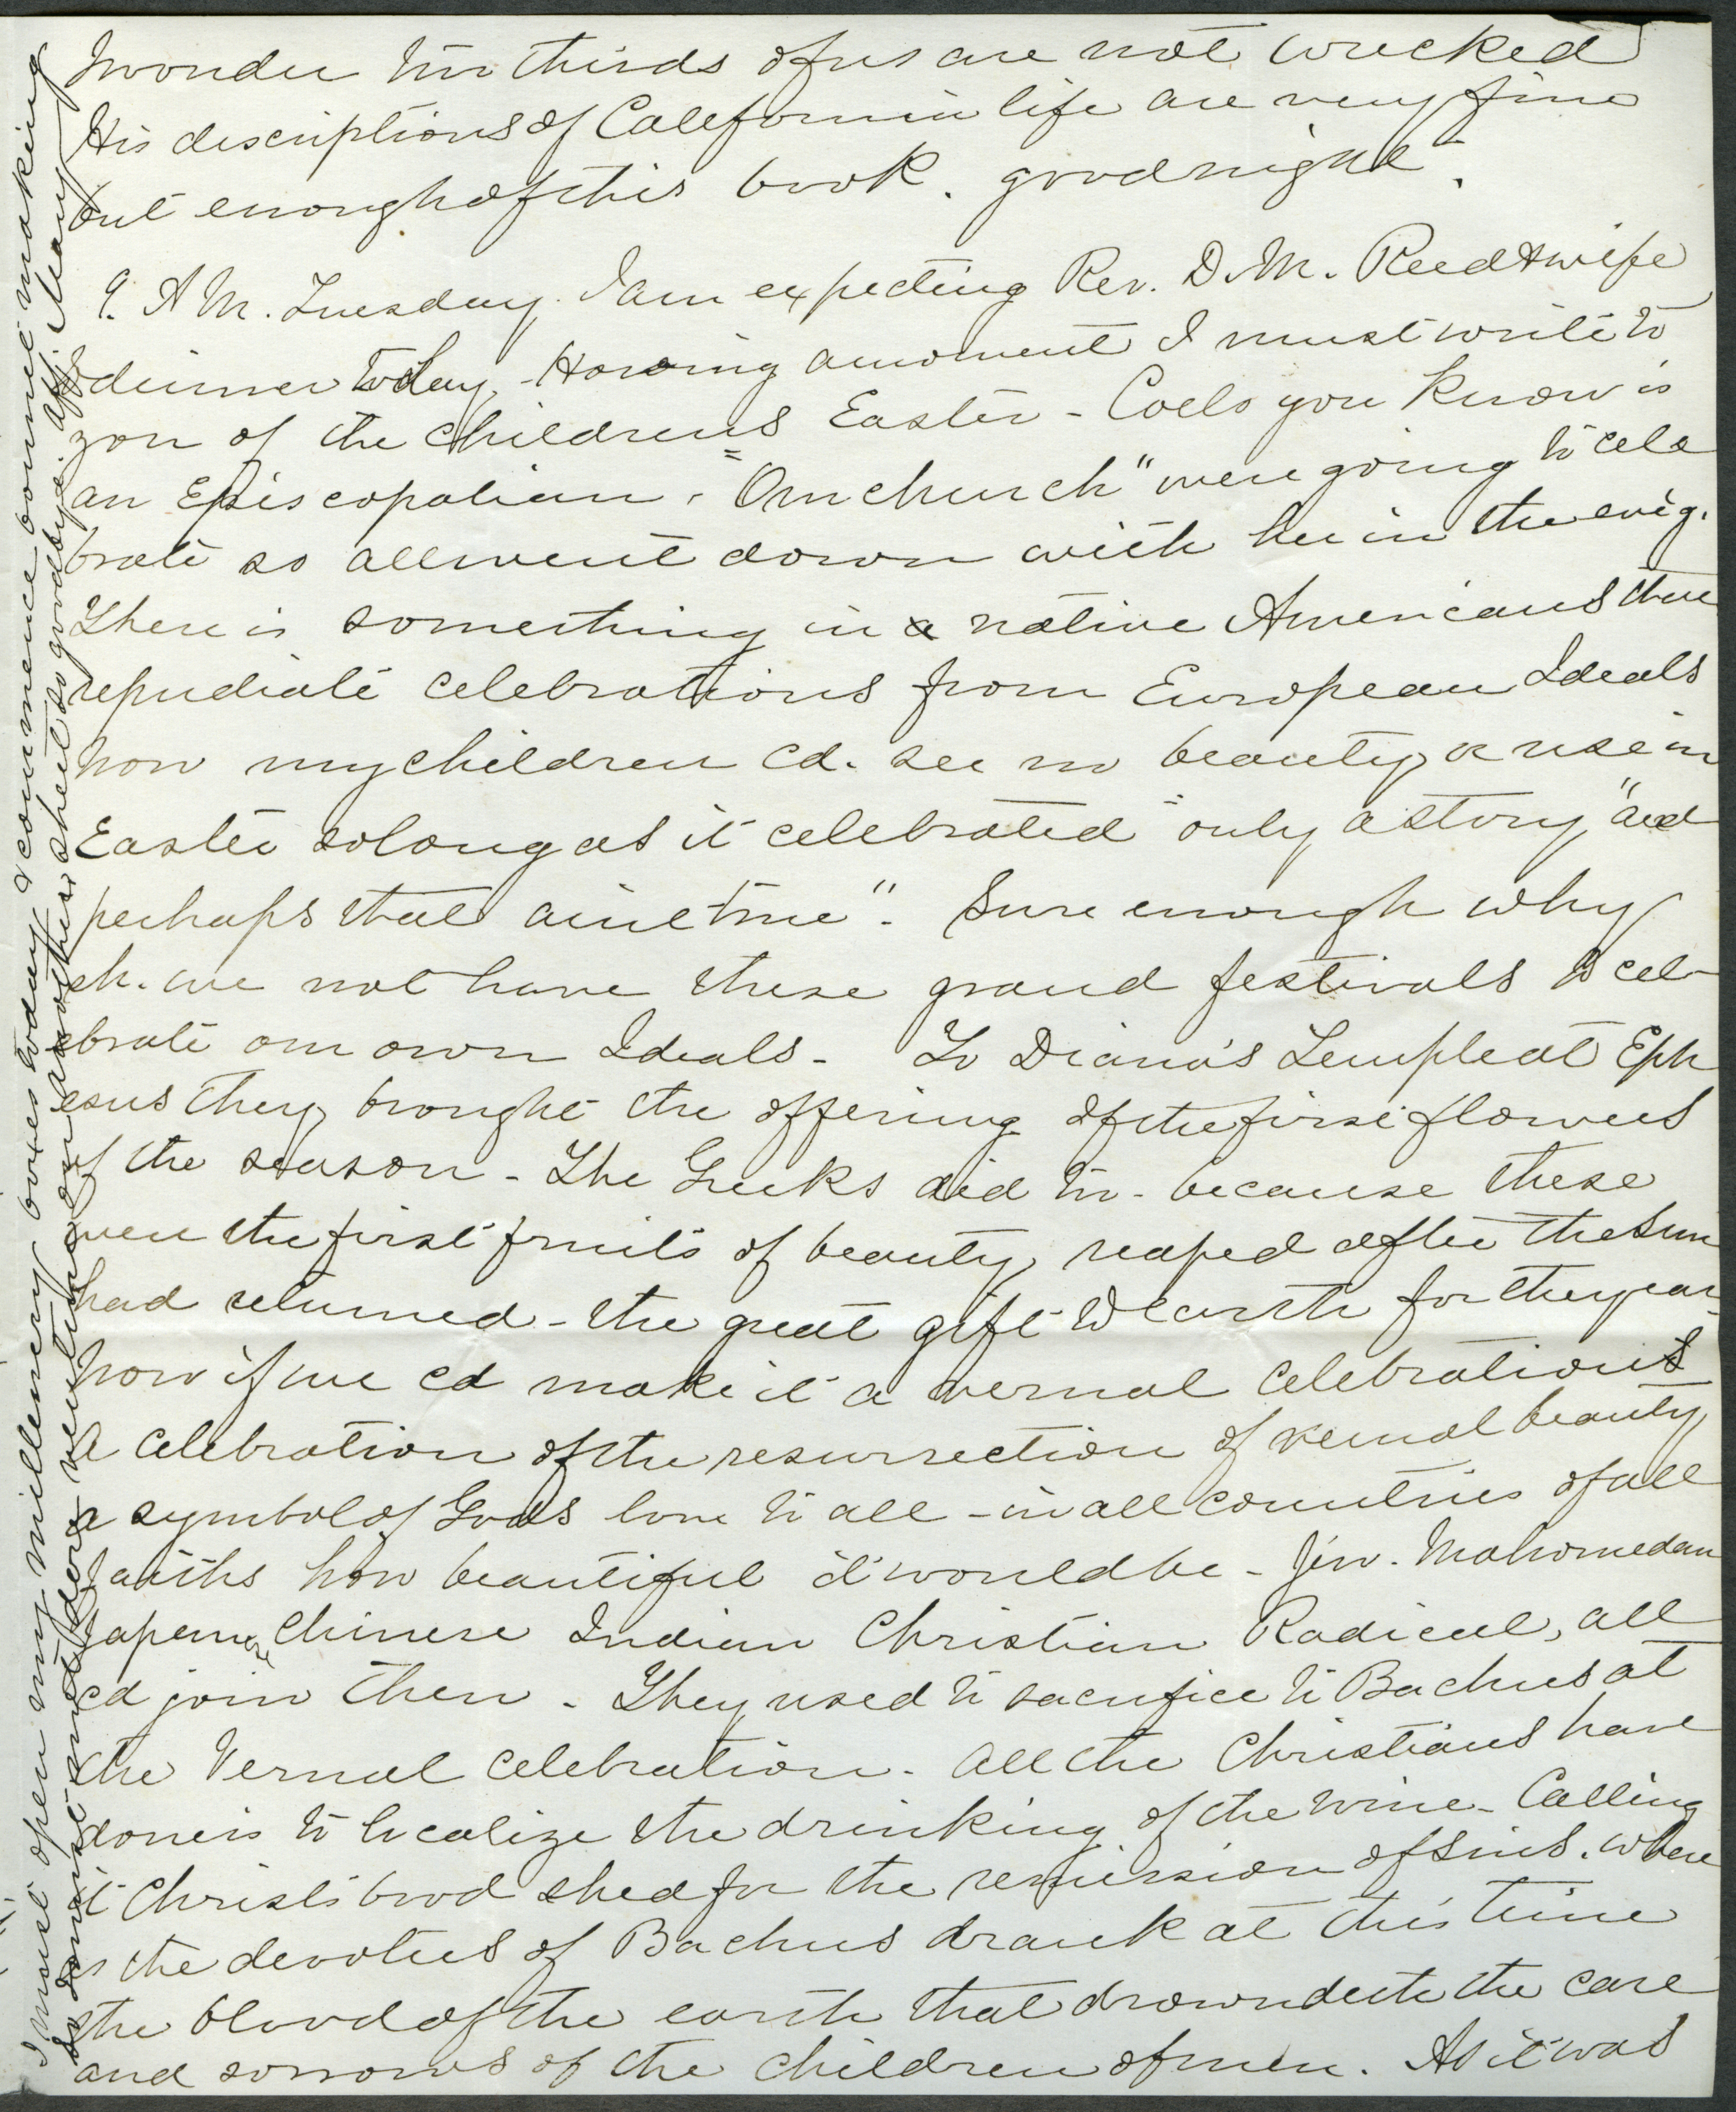 I wonder two thirds of us are not wrecked
His descriptions of California life are very fine
but enough of this book. good night.
9. A M. Tuesday. I am expecting Rev. D. M. Reed & wife
to dinner today, - Having a moment I must write to
you of the childrens Easter - Coels you know is
an Episcopalian. "Our church" were going to cele
brate so all went down with her in the evig.
There is something in a native Americans that
repudiate celebrations from European Ideals
Now my children cd. see no beauty or use in
Easter so long as it celebrated "only a story, and
perhaps that aint true". Sure enough why
sh. we not have these grand festivals to cel-
ebrate our own Ideals - To Diana's Temple at Eph
esus they brought the offering of the first flowers
of the season - The Greeks did to - because these
were the first fruits of beauty, reaped after the Sun
had returned - the great gift to earth for the year.
Now if we cd make it a vernal celebration
A celebration of the resurrection of vernal beauty,
a symbol of Gods love to all - in all countries of all
faiths how beautiful it would be - Jew. Mahomedan
Japanese Chinese Indian Christian Radical, all
cd join then - They used to sacrifice to Bachus at
the Vernal celebration. All the Christians have
done is to localize the drinking of the wine - Calling
it Christs bood shed for the remission of sins. where
as the devotees of Bachus drank at this time
the blood of the earth that drowndeth the care
and sorrows of the children of men. As it was
I must open my millinery boxes today & commence bonnet making
so must send don't venture on another sheet so goodbye. aff. Mary